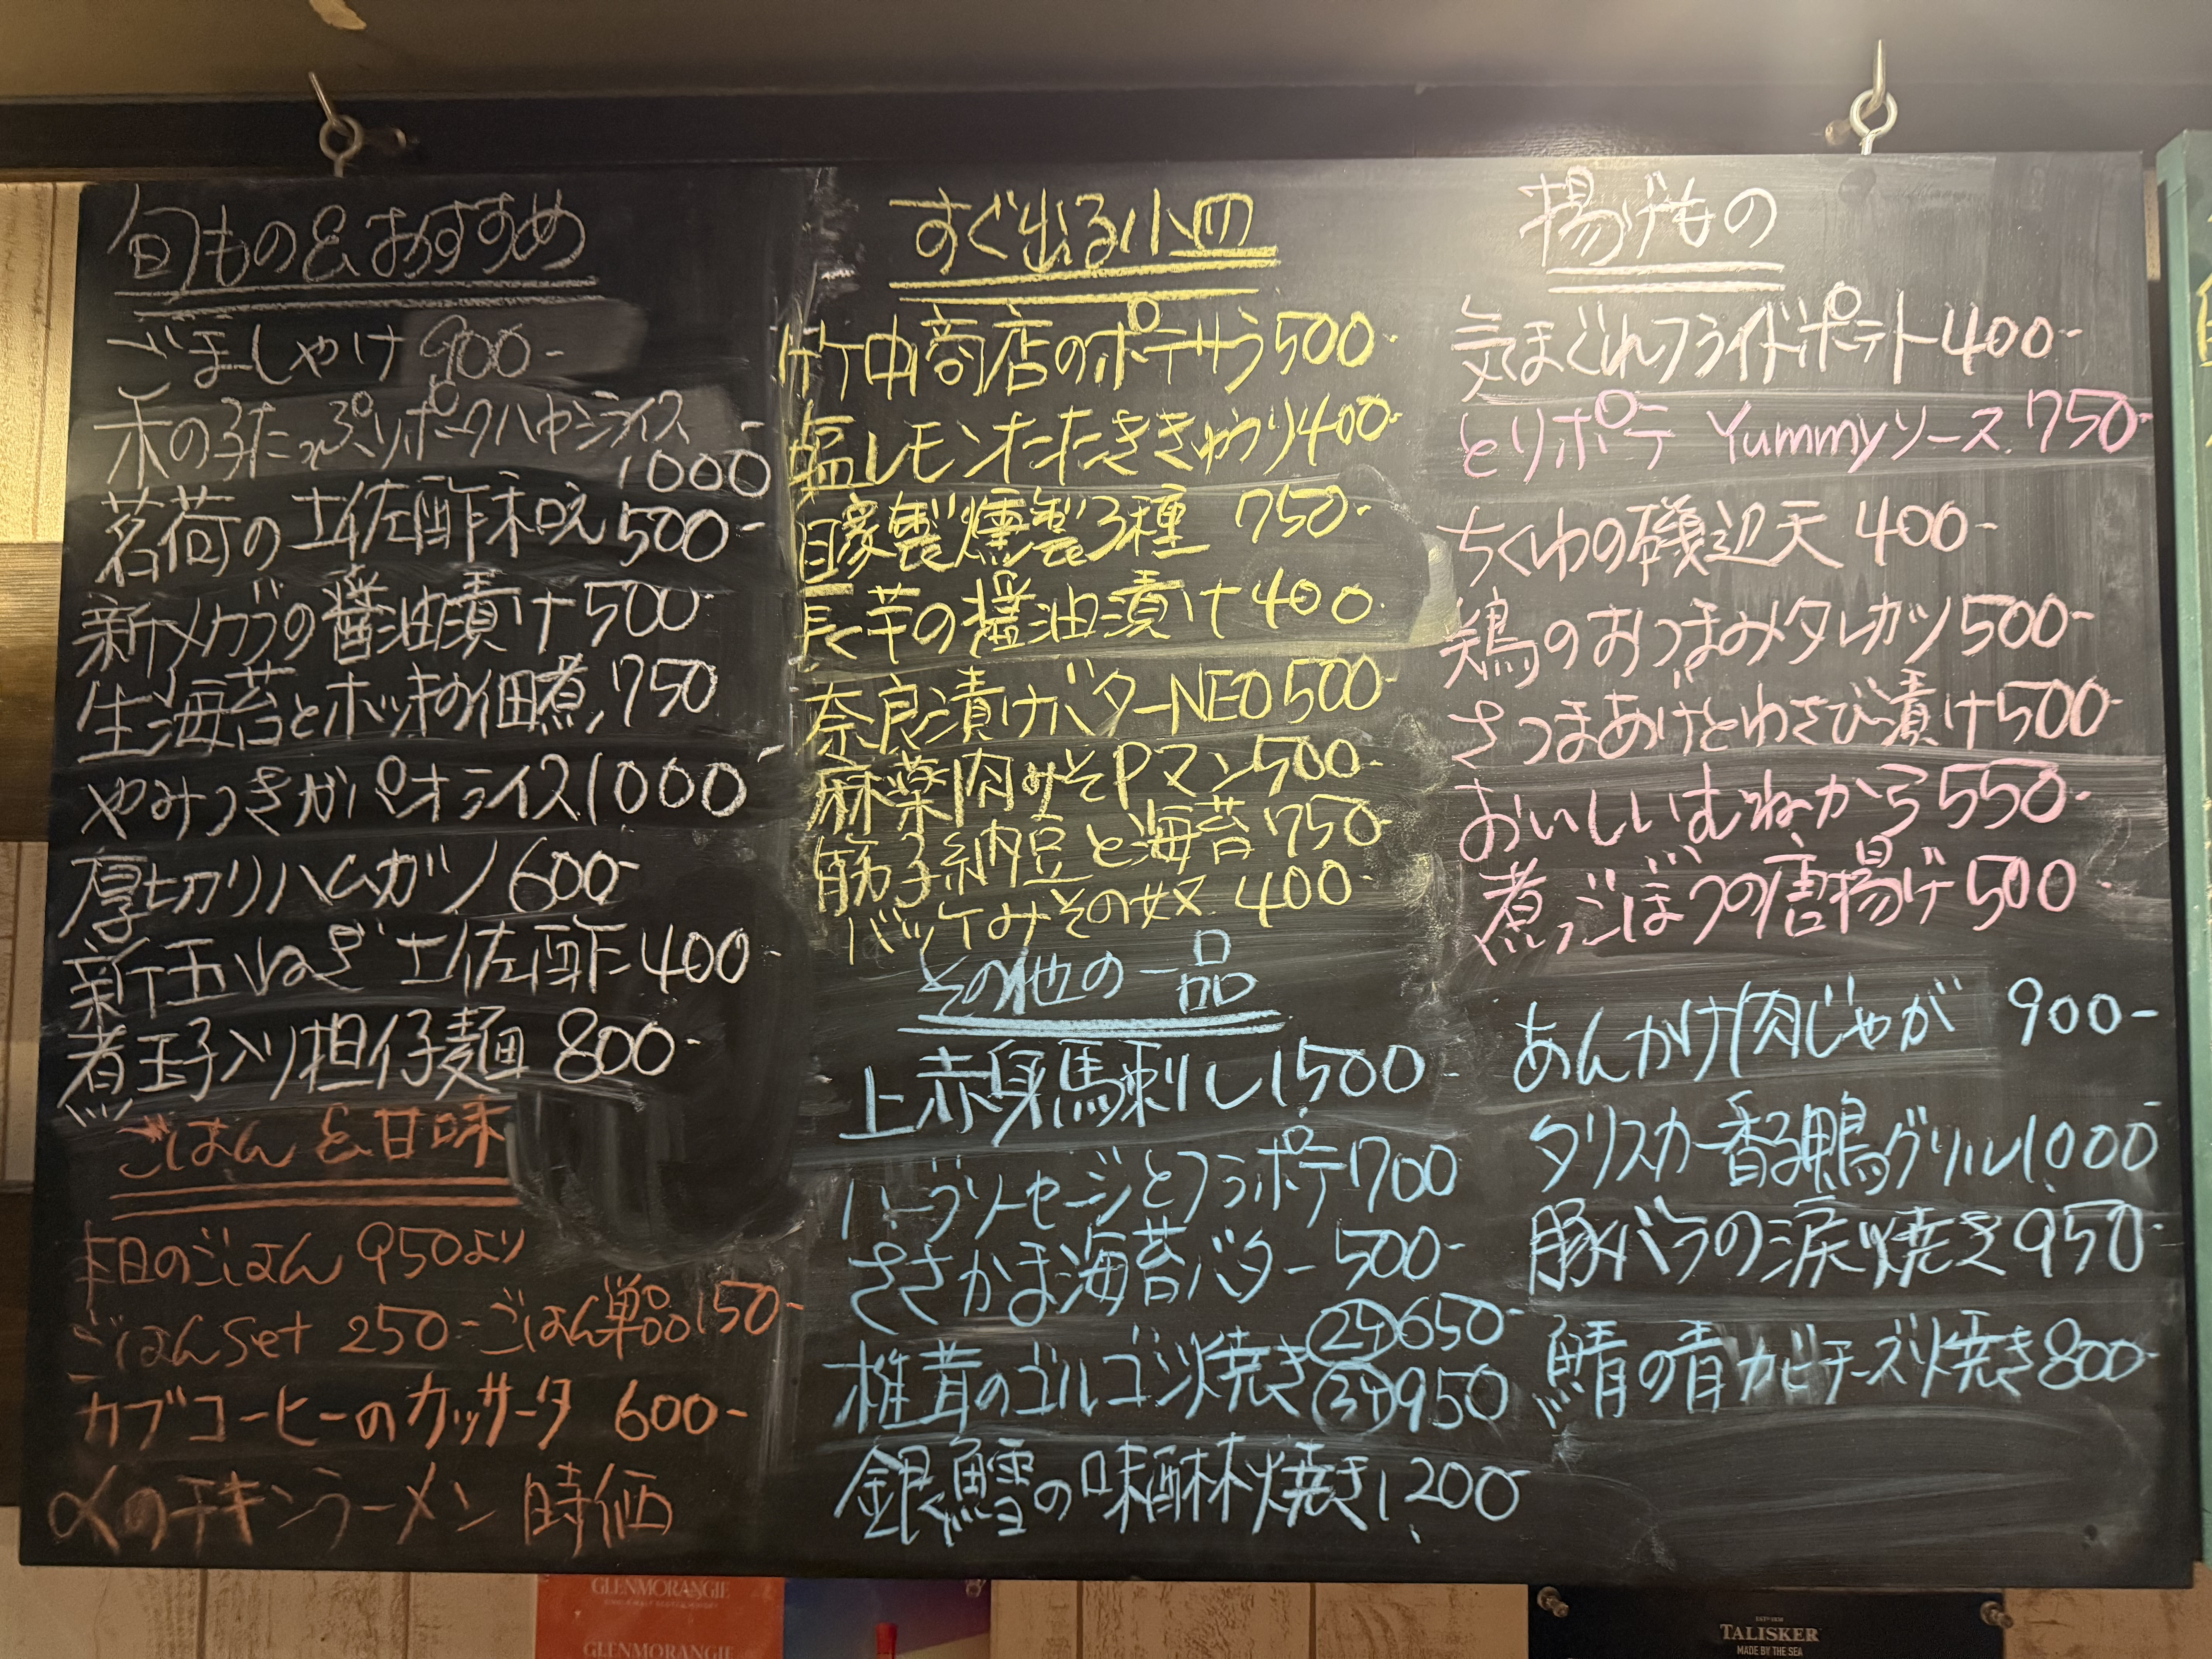 旬もの&おすすめ
ごましゃけ 900-
木の子たっぷりポークハヤシライス
1000-
茗荷の土佐酢和え 500-
新メカブの醤油漬け 500-
生海苔とホッキの佃煮 750
やみつきガパオライス 1000-
厚切りハムカツ 600-
新玉ねぎ土佐酢 400-
煮玉子入り担仔麺 800-
ごはん&甘味
本日のごはん 950より
ごはんSet 250- ごはん単品150-
カブコーヒーのカッサータ 600-
〆のチキンラーメン 時価
すぐ出る小皿
竹中商店のポテサラ 500-
塩レモンたたききゅうり 400-
自家製燻製3種 750-
長芋の醤油漬け 400-
奈良漬けバターNEO 500-
麻薬肉みそPマン 500-
筋子納豆と海苔 750-
バッケみその奴 400-
その他の一品
上赤身馬刺し 1500-
ハーブソーセージとフラポテ 700
ささかま海苔バター 500-
椎茸のゴルゴンゾ焼き 2ケ 650-
3ケ 950
銀鱈の味醂焼き 1,200-
揚げもの
気まぐれフライドポテト 400-
とりポテ Yummyソース 750-
ちくわの磯辺天 400-
鶏のおつまみタレカツ 500-
さつまあげとわさび漬け 500-
おいしいむねから 550-
煮ごぼうの唐揚げ 500-
あんかけ肉じゃが 900-
タリスカー香る鴨グリル 1000-
豚バラの涙焼き 950-
鯖の青カビチーズ焼き 800-
GLENMORANGIE
GLENMORANGIE
TALISKER
MADE BY THE SEA